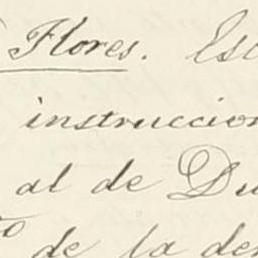 Flores. Est
instruccion
al de Du
to de la de